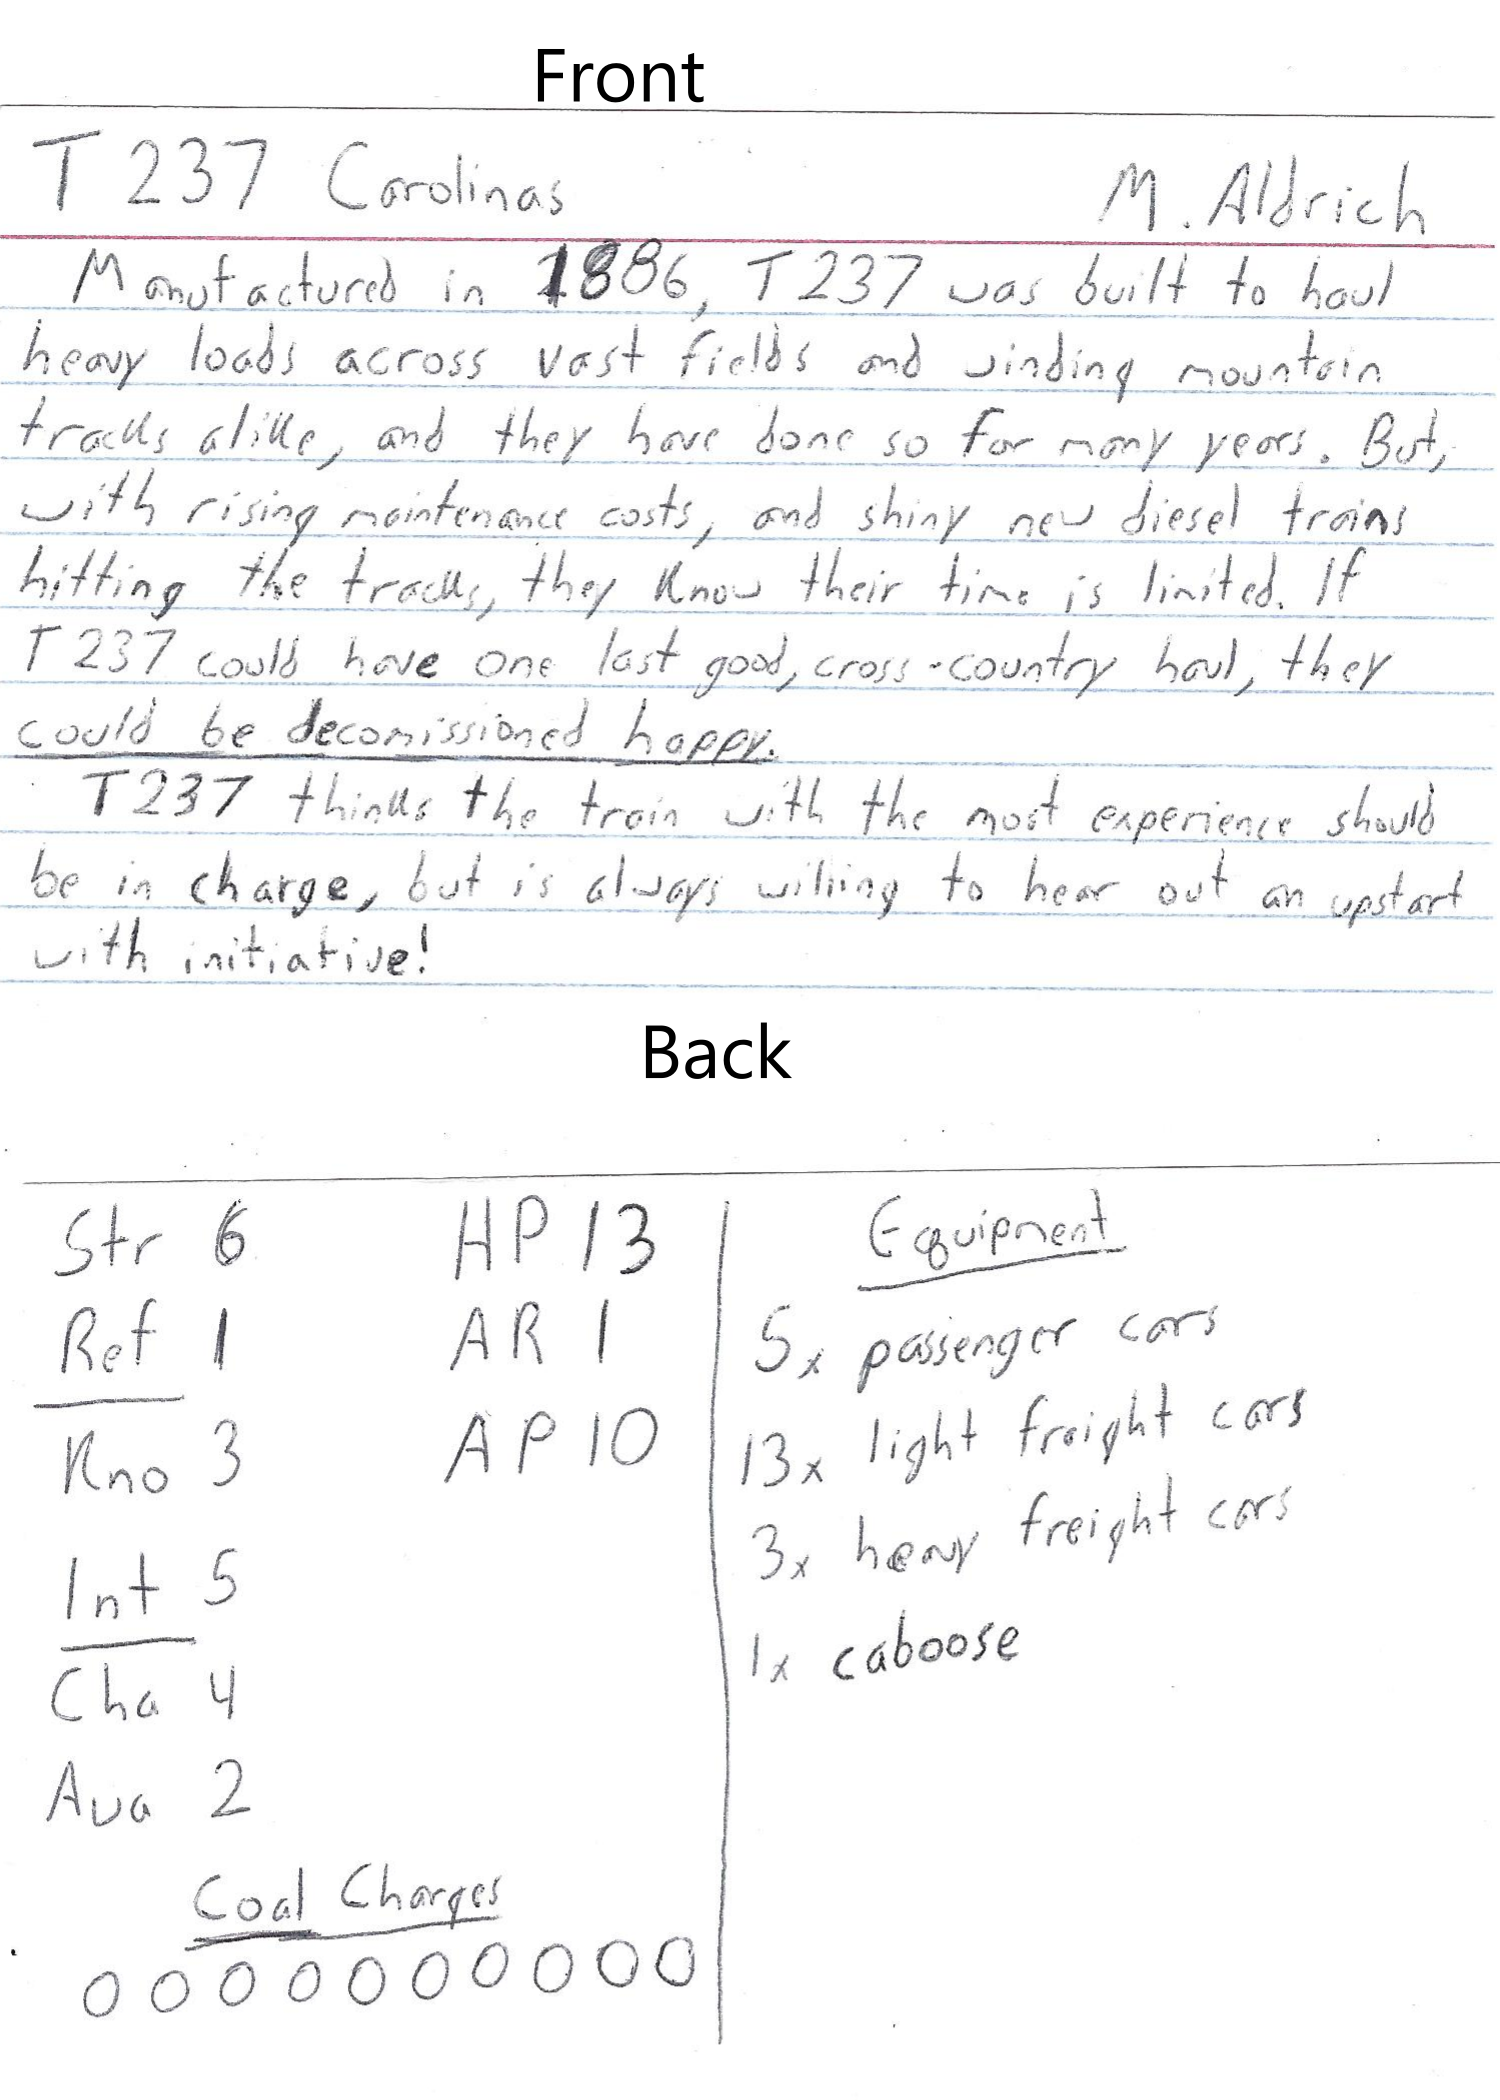 Front
T 237 Carolinas M. Aldrich
Manufactured in 1886, T 237 was built to haul
heavy loads across vast fields and winding mountain
tracks alike, and they have done so for many years. But,
with rising maintenance costs, and shiny new diesel trains
hitting the tracks, they know their time is limited. If
T 237 could have one last good, cross-country haul, they
could be decomissioned happy.
T 237 thinks the train with the most experience should
be in charge, but is always willing to hear out an upstart
with initiative!
Back
Str 6 HP 13 Equipment
Ref 1 AR 1 5x passenger cars
Kno 3 AP 10 13x light freight cars
Int 5 3x heavy freight cars
Cha 4 1x caboose
Ava 2
Coal Charges
O O O O O O O O O O